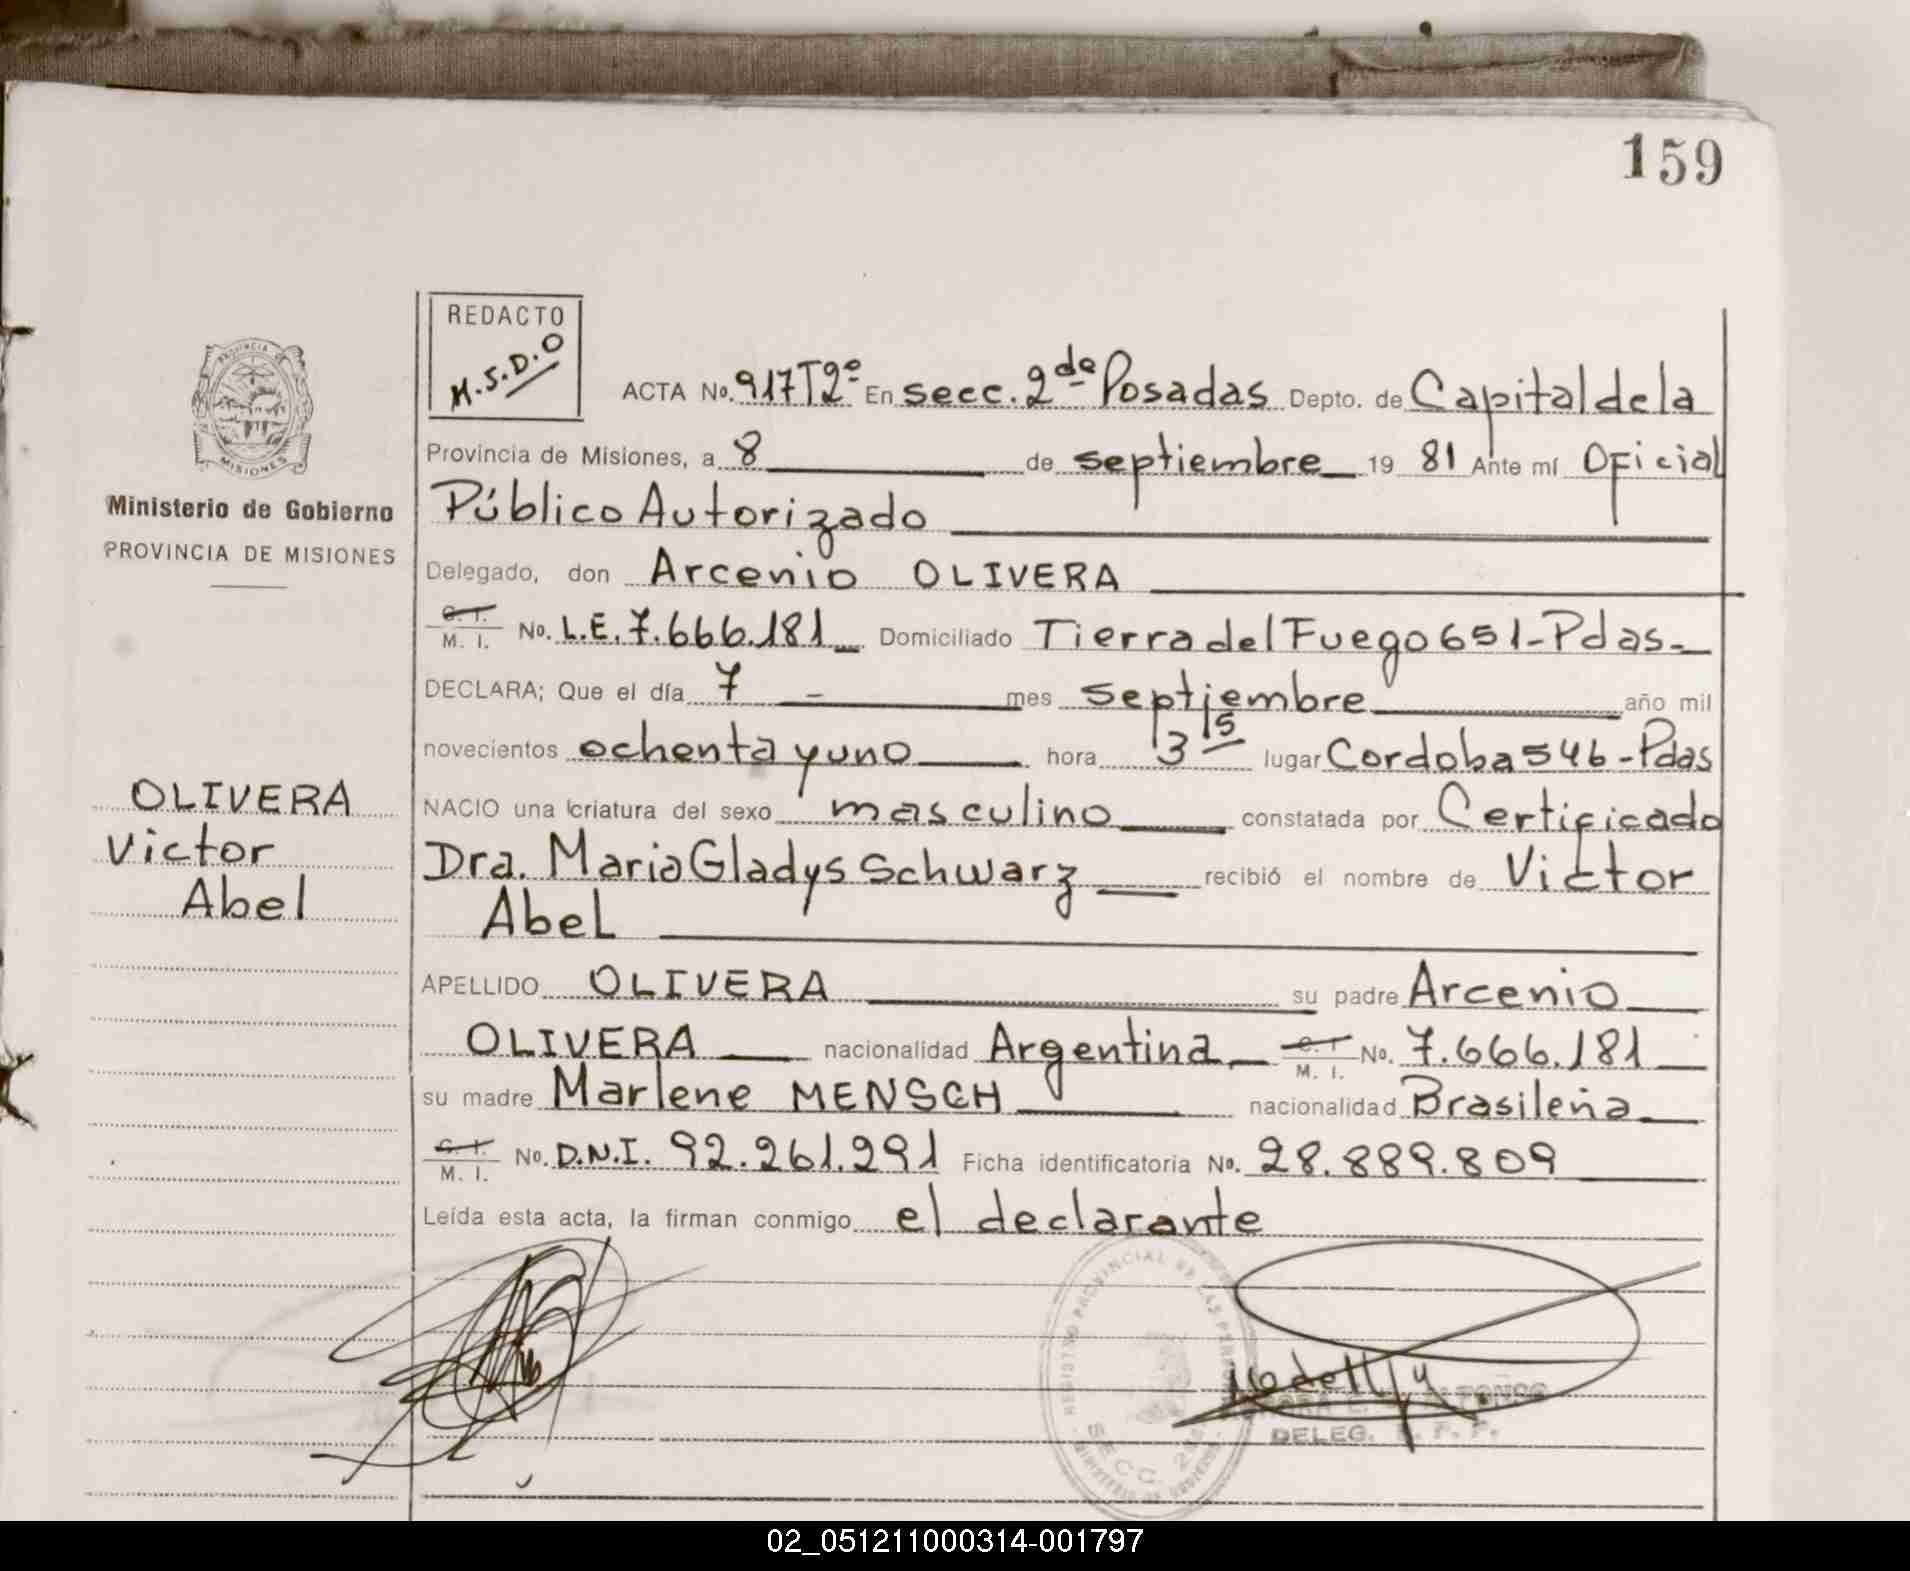 159
REDACTO
M.S.D.O
ACTA No. 917T2º En secc. 2da Posadas Depto. de Capital de la
PROVINCIA DE
MISIONES
Provincia de Misiones, a 8 de septiembre 19 81 Ante mí Oficial
Ministerio de Gobierno
PROVINCIA DE MISIONES
Público Autorizado
Delegado, don Arcenio OLIVERA
C. I. M. I. No. L.E. 7.666.181 Domiciliado Tierra del Fuego 651-Pdas-
DECLARA; Que el día 7 mes septiembre año mil
novecientos ochenta y uno hora 13 15 lugar Cordoba 546-Pdas
OLIVERA
Victor
Abel
NACIO una criatura del sexo masculino constatada por Certificado
Dra. Maria Gladys Schwarz recibió el nombre de Victor
Abel
APELLIDO OLIVERA su padre Arcenio
OLIVERA nacionalidad Argentina C. I. M. I. No. 7.666.181
su madre Marlene MENSCH nacionalidad Brasileña
C. I. M. I. No. D.N.I. 92.261.291 Ficha identificatoria No. 28.889.809
Leída esta acta, la firman conmigo el declarante
REGISTRO PROVINCIAL DE LAS
SECC. 2da
MINISTERIO DE GOBIERNO
DELEG.
02_051211000314-001797